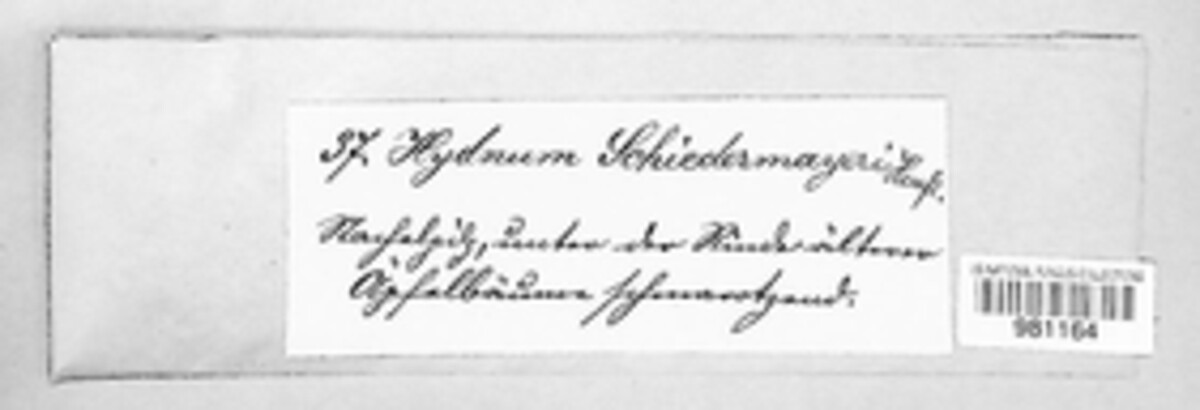 37. Hydnum Schiedermayeri Heufl.
Stachelpilz, unter der Rinde älterer
Äpfelbäume schmarotzend.
981164